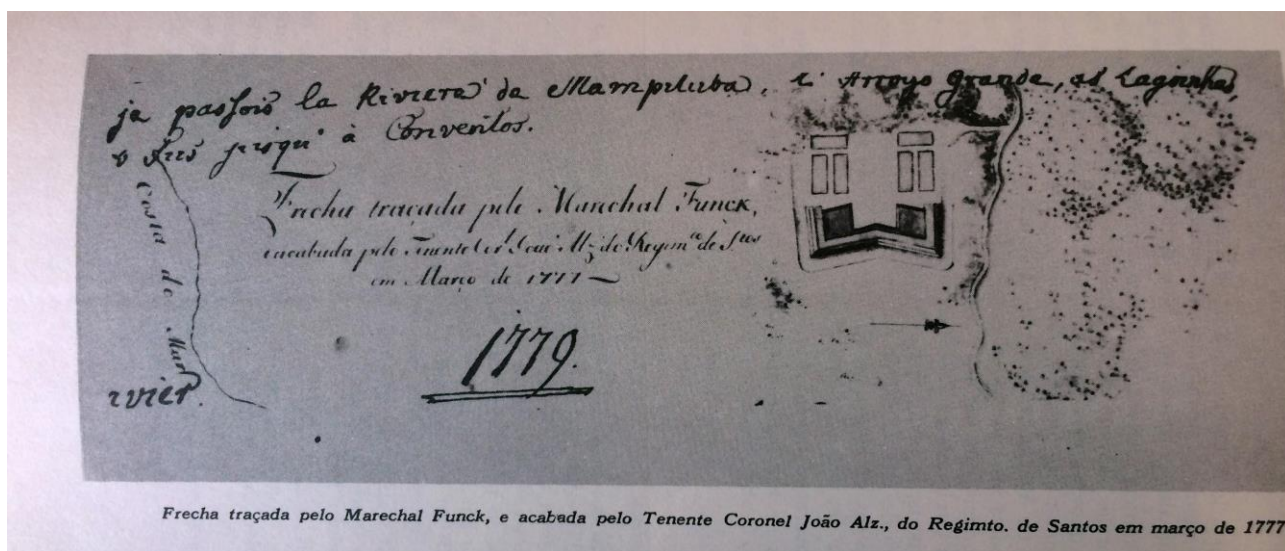 ja passois la Riviera da Mampituba, i Arroyo grande, as Lagoinhas,
jusqu' à Conventos.
Frecha traçada pelo Marechal Funck,
eacabada pelo Tenente Cor.l Joaõ Alz do Regim.to de S.tos
em Março de 1777
Costa do Mar
1779.
Frecha traçada pelo Marechal Funck, e acabada pelo Tenente Coronel João Alz., do Regimto. de Santos em março de 1777